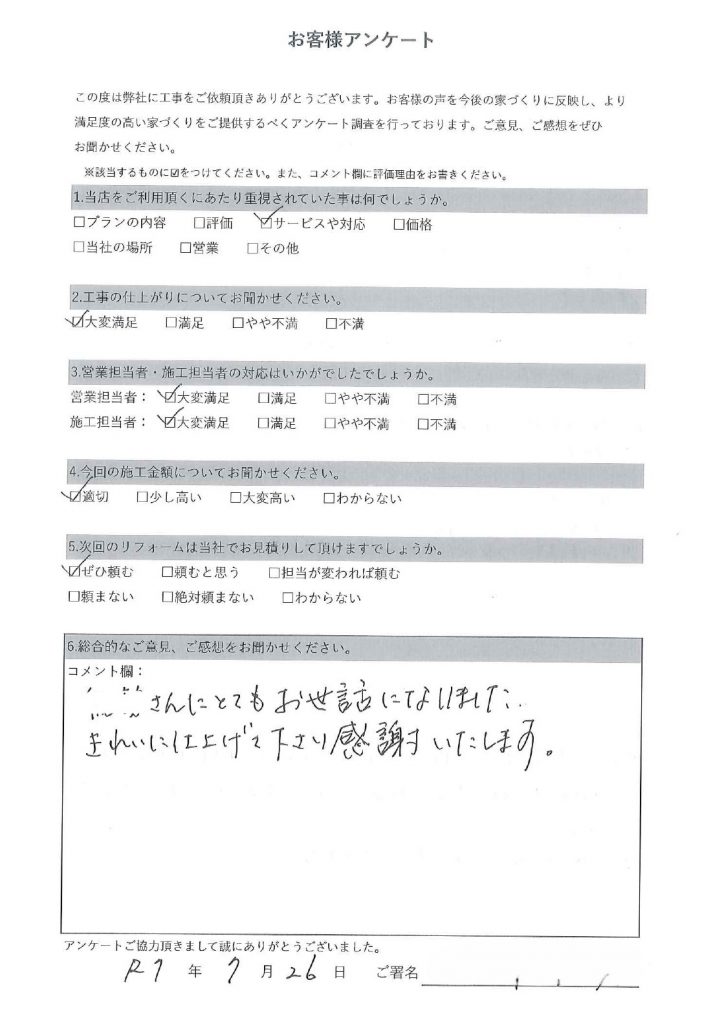 お客様アンケート
この度は弊社に工事をご依頼頂きありがとうございます。お客様の声を今後の家づくりに反映し、より
満足度の高い家づくりをご提供するべくアンケート調査を行っております。ご意見、ご感想をぜひ
お聞かせください。
※該当するものに☑をつけてください。また、コメント欄に評価理由をお書きください。
1.当店をご利用頂くにあたり重視されていた事は何でしょうか。
☐プランの内容 ☐評価 ☑サービスや対応 ☐価格
☐当社の場所 ☐営業 ☐その他
2.工事の仕上がりについてお聞かせください。
☑大変満足 ☐満足 ☐やや不満 ☐不満
3.営業担当者・施工担当者の対応はいかがでしたでしょうか。
営業担当者： ☑大変満足 ☐満足 ☐やや不満 ☐不満
施工担当者： ☑大変満足 ☐満足 ☐やや不満 ☐不満
4.今回の施工金額についてお聞かせください。
☑適切 ☐少し高い ☐大変高い ☐わからない
5.次回のリフォームは当社でお見積りして頂けますでしょうか。
☑ぜひ頼む ☐頼むと思う ☐担当が変われば頼む
☐頼まない ☐絶対頼まない ☐わからない
6.総合的なご意見、ご感想をお聞かせください。
コメント欄：
さんにとてもお世話になりました.
きれいに仕上げて下さり感謝いたします。
アンケートご協力頂きまして誠にありがとうございました。
R7 年 7 月 26 日 ご署名